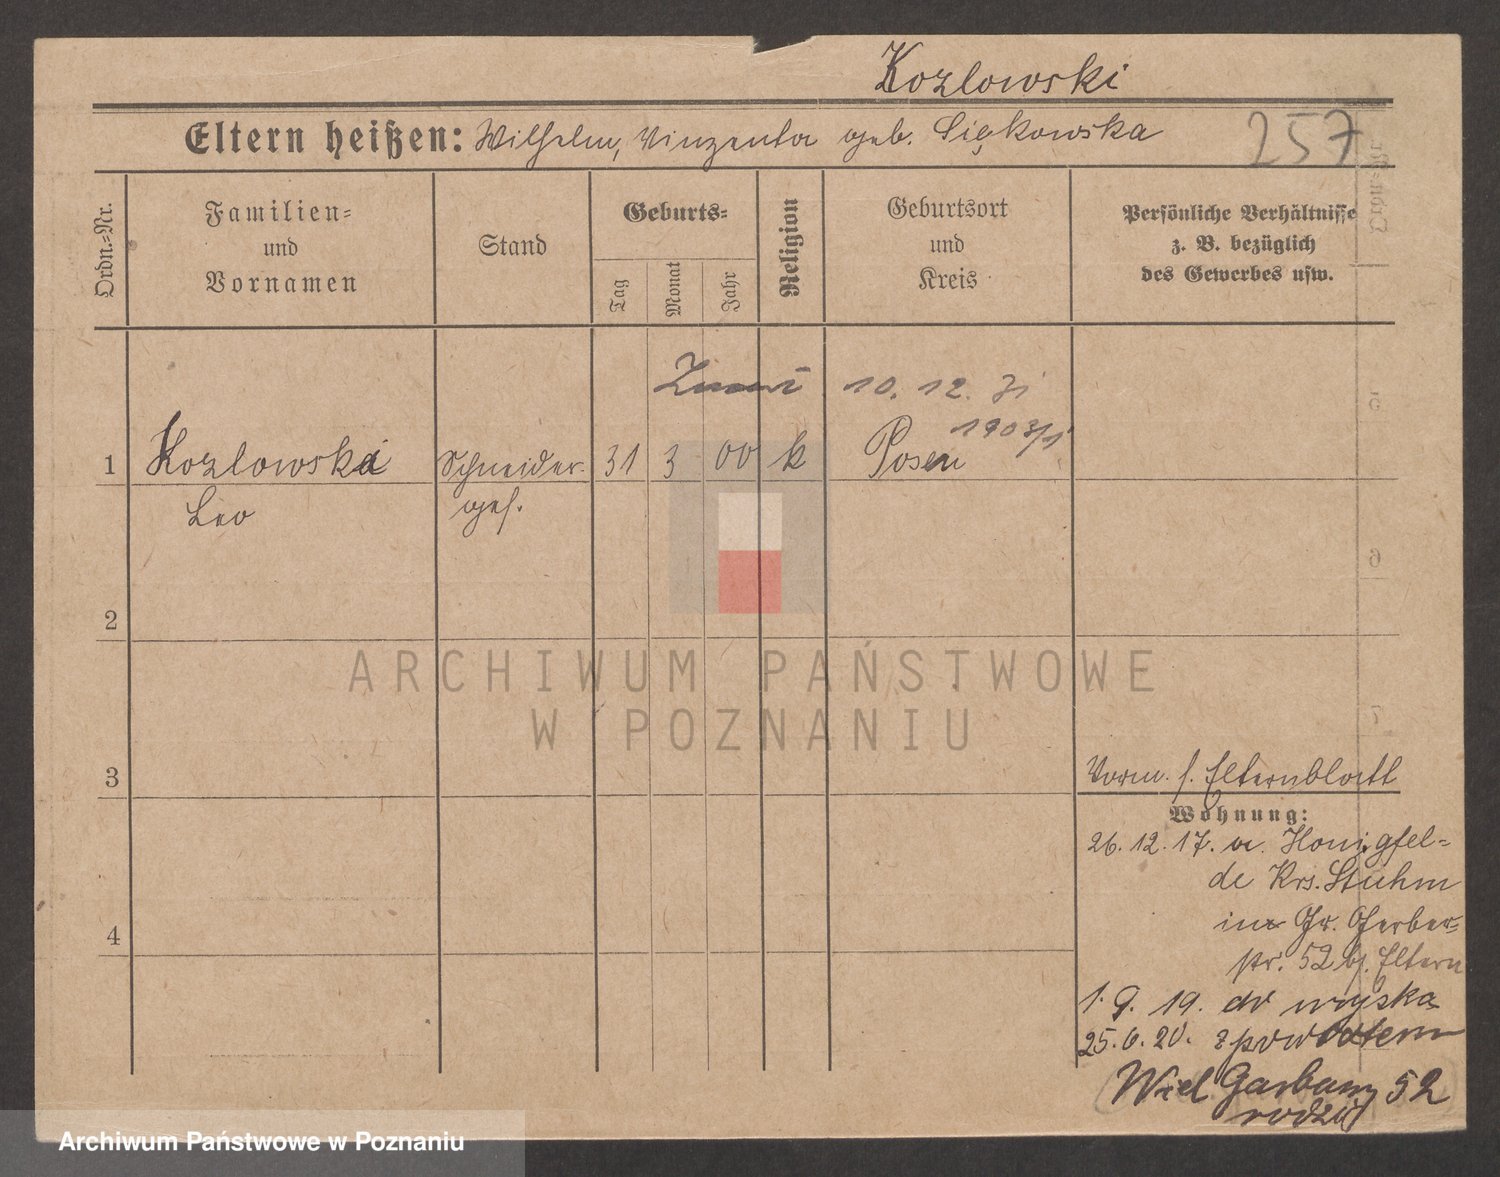 Kozlowski
Eltern heißen: Wilhelm, Vinzenta geb. Siękowska
257
Ordn.=Nr.
Familien=
und
Vornamen
Stand
Geburts=
Tag
Monat
Jahr
Religion
Geburtsort
und
Kreis
Persönliche Verhältnisse
z. B. bezüglich
des Gewerbes usw.
10. 12.
1 Kozlowski Schneider- 31 3 00 k Posen
Leo ges.
2
3
4
Vorm. s. Elternblatt
Wohnung:
26. 12. 17. v. Honigfel=
de Krs. Stuhm
in Gr. Gerber=
str. 52 b/. Eltern
1. 9. 19. do wojska
25. 6. 20. z powrotem
Wiel Garbary 52
ARCHIWUM PAŃSTWOWE
W POZNANIU
Archiwum Państwowe w Poznaniu